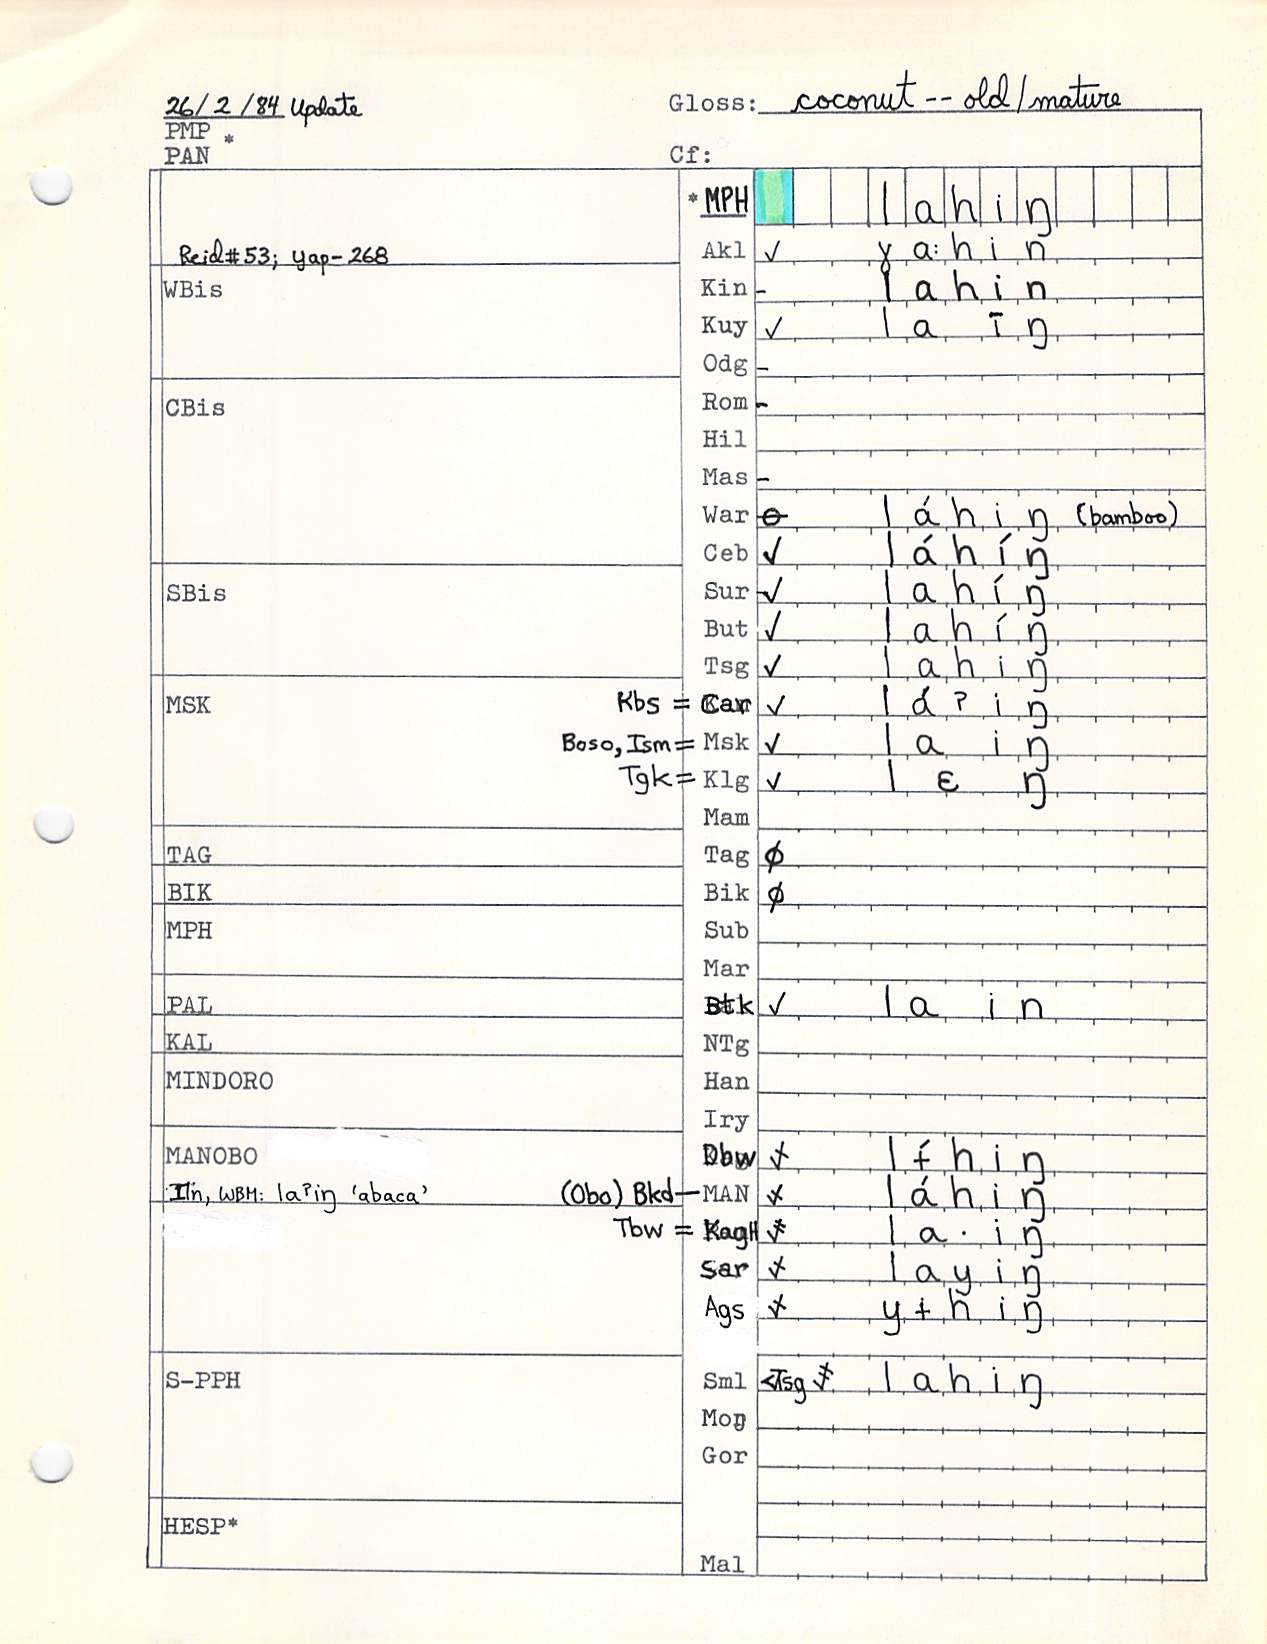 26/2/84 Update Gloss: coconut -- old/mature
PMP *
PAN Cf:
* MPH lahiŋ
Reid#53; yap-268 Akl ✓ ɣa:hin
WBis Kin - lahin
Kuy ✓ la īŋ
Odg -
CBis Rom -
Hil
Mas -
War ⊖ láhiŋ (bamboo)
Ceb ✓ láhíŋ
SBis Sur ✓ lahíŋ
But ✓ lahíŋ
Tsg ✓ lahiŋ
MSK Kbs = Car ✓ láʔiŋ
Boso, Ism = Msk ✓ la iŋ
Tgk = Klg ✓ l ɛ ŋ
Mam
TAG Tag ∅
BIK Bik ∅
MPH Sub
Mar
PAL Btk ✓ la in
KAL NTg
MINDORO Han
Iry
MANOBO Dbw ✓ lɨ́hiŋ
Iln, WBM: laʔiŋ 'abaca' (Obo) Bkd—MAN ✓ láhiŋ
Tbw = KagH ✓ la·iŋ
Sar ✓ layiŋ
Ags ✓ yɨhiŋ
S-PPH Sml <Tsg ✓ lahiŋ
Moŋ
Gor
HESP*
Mal